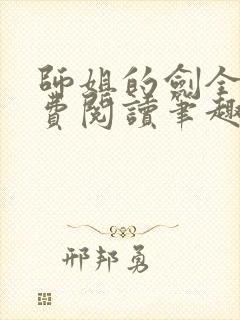 師姐的劍全
費閱讀筆趣
邢邦勇